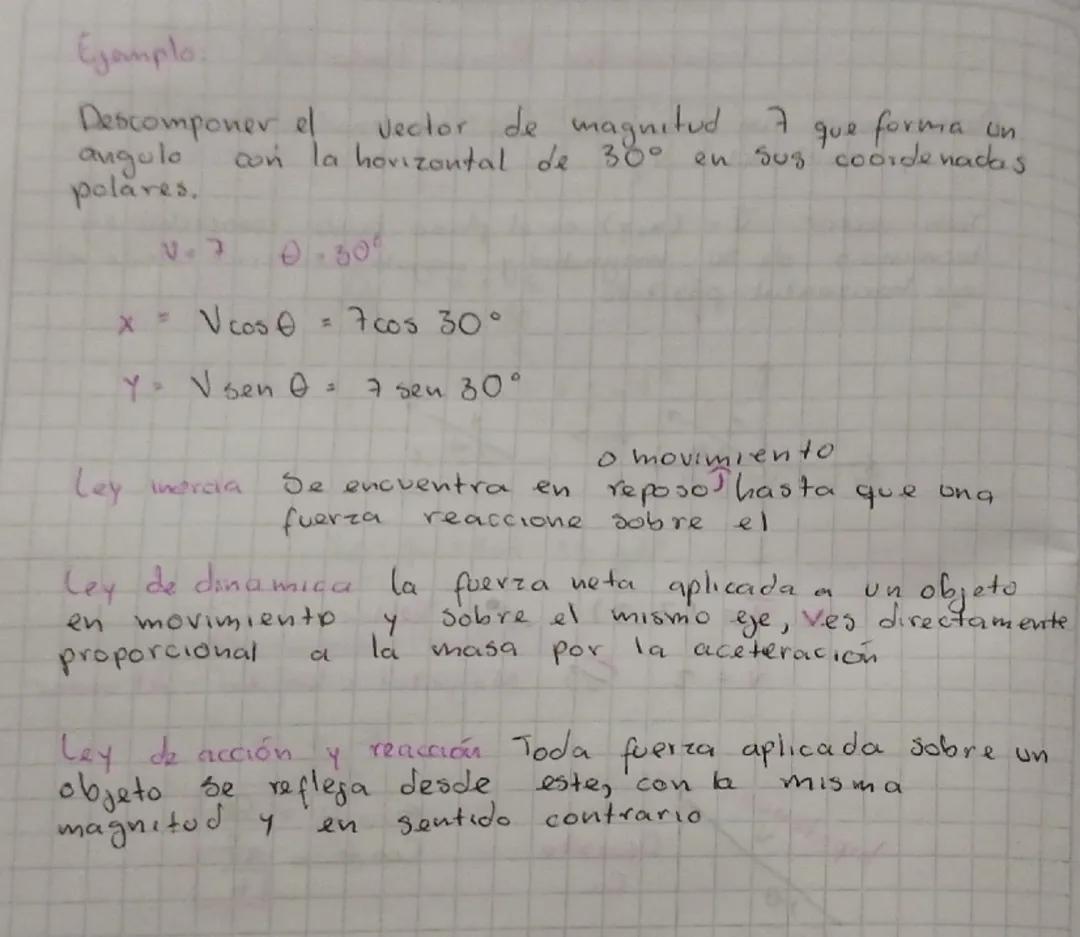 Ejemplo:
Descomponer el vector de magnitud 7 que forma un
angulo con la horizontal de 30° en sus coordenadas
polares.
V=7 θ=30°
x = Vcosθ = 7cos 30°
Y = Vsen θ = 7 sen 30°
o movimiento
Ley inercia Se encuentra en reposo hasta que una
fuerza reaccione sobre el
Ley de dinamica la fuerza neta aplicada a un objeto
en movimiento y sobre el mismo eje, es directamente
proporcional a la masa por la aceteración
Ley de acción y reacción Toda fuerza aplicada sobre un
objeto se refleja desde este, con la misma
magnitud y en sentido contrario